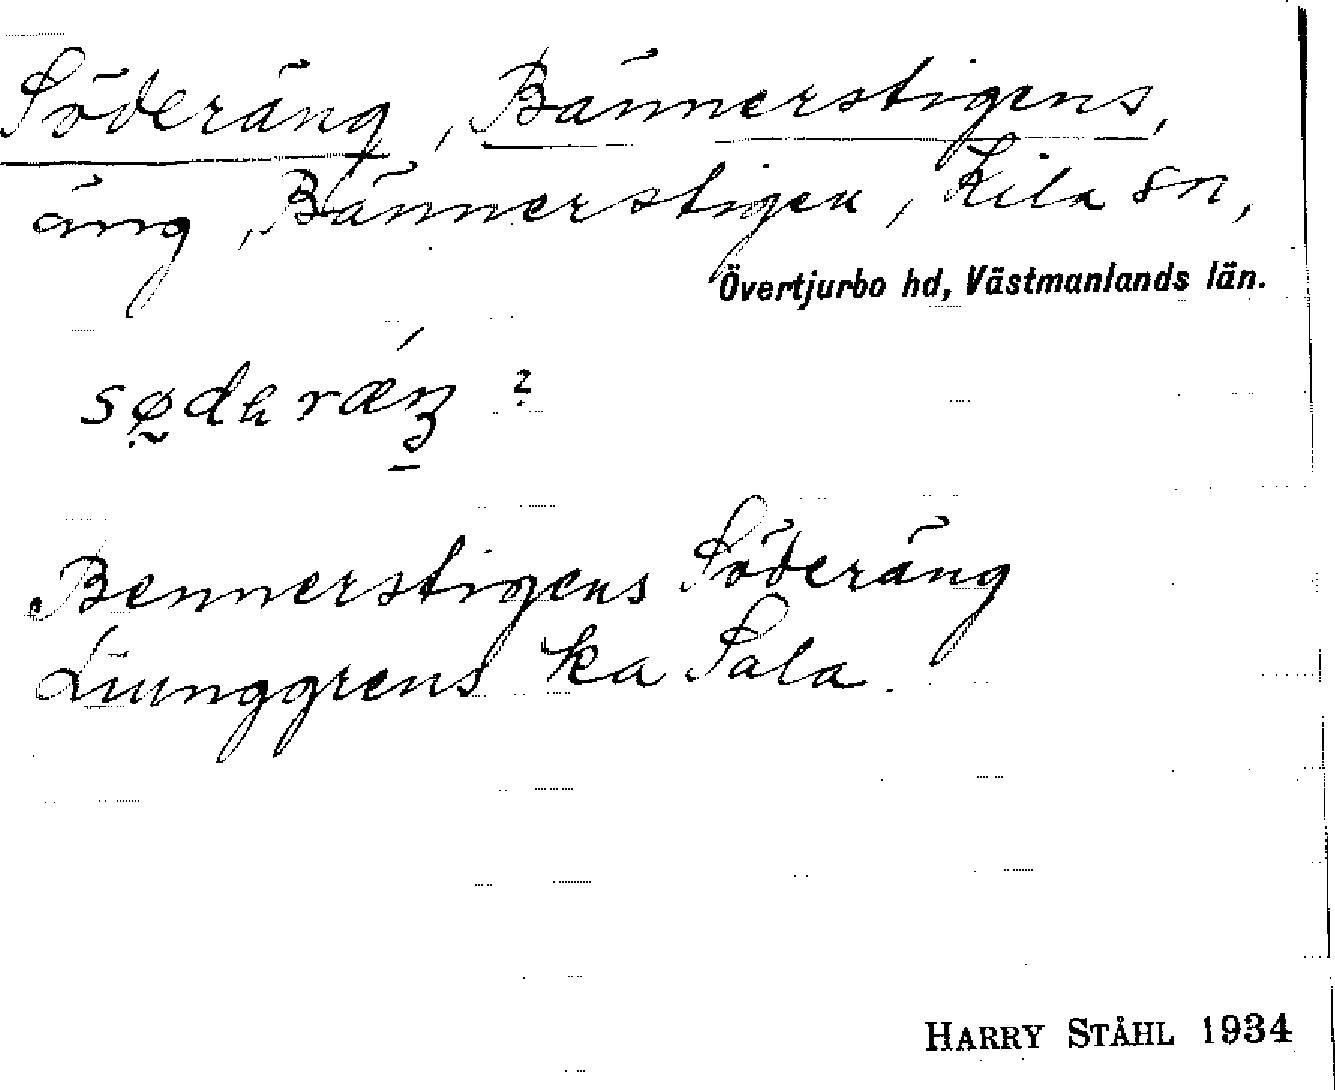 Söderäng, Bännerstigens,
äng, Bännerstigen, Kila sn,
Övertjurbo hd, Västmanlands län.
Bennerstigens Söderäng
Liunggrens ka Sala.
HARRY STÅHL 1934